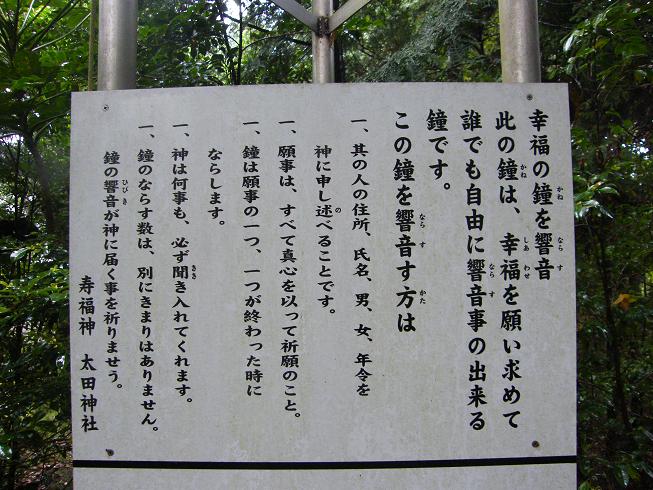 幸福の鐘を響音
此の鐘は、幸福を願い求めて
誰でも自由に響音事の出来る
鐘です。
この鐘を響音す方は
一、其の人の住所、氏名、男、女、年令を
神に申し述べることです。
一、願事は、すべて真心を以って祈願のこと。
一、鐘は願事の一つ、一つが終わった時に
ならします。
一、神は何事も、必ず聞き入れてくれます。
一、鐘のならす数は、別にきまりはありません。
鐘の響音が神に届く事を祈りませう。
寿福神 太田神社